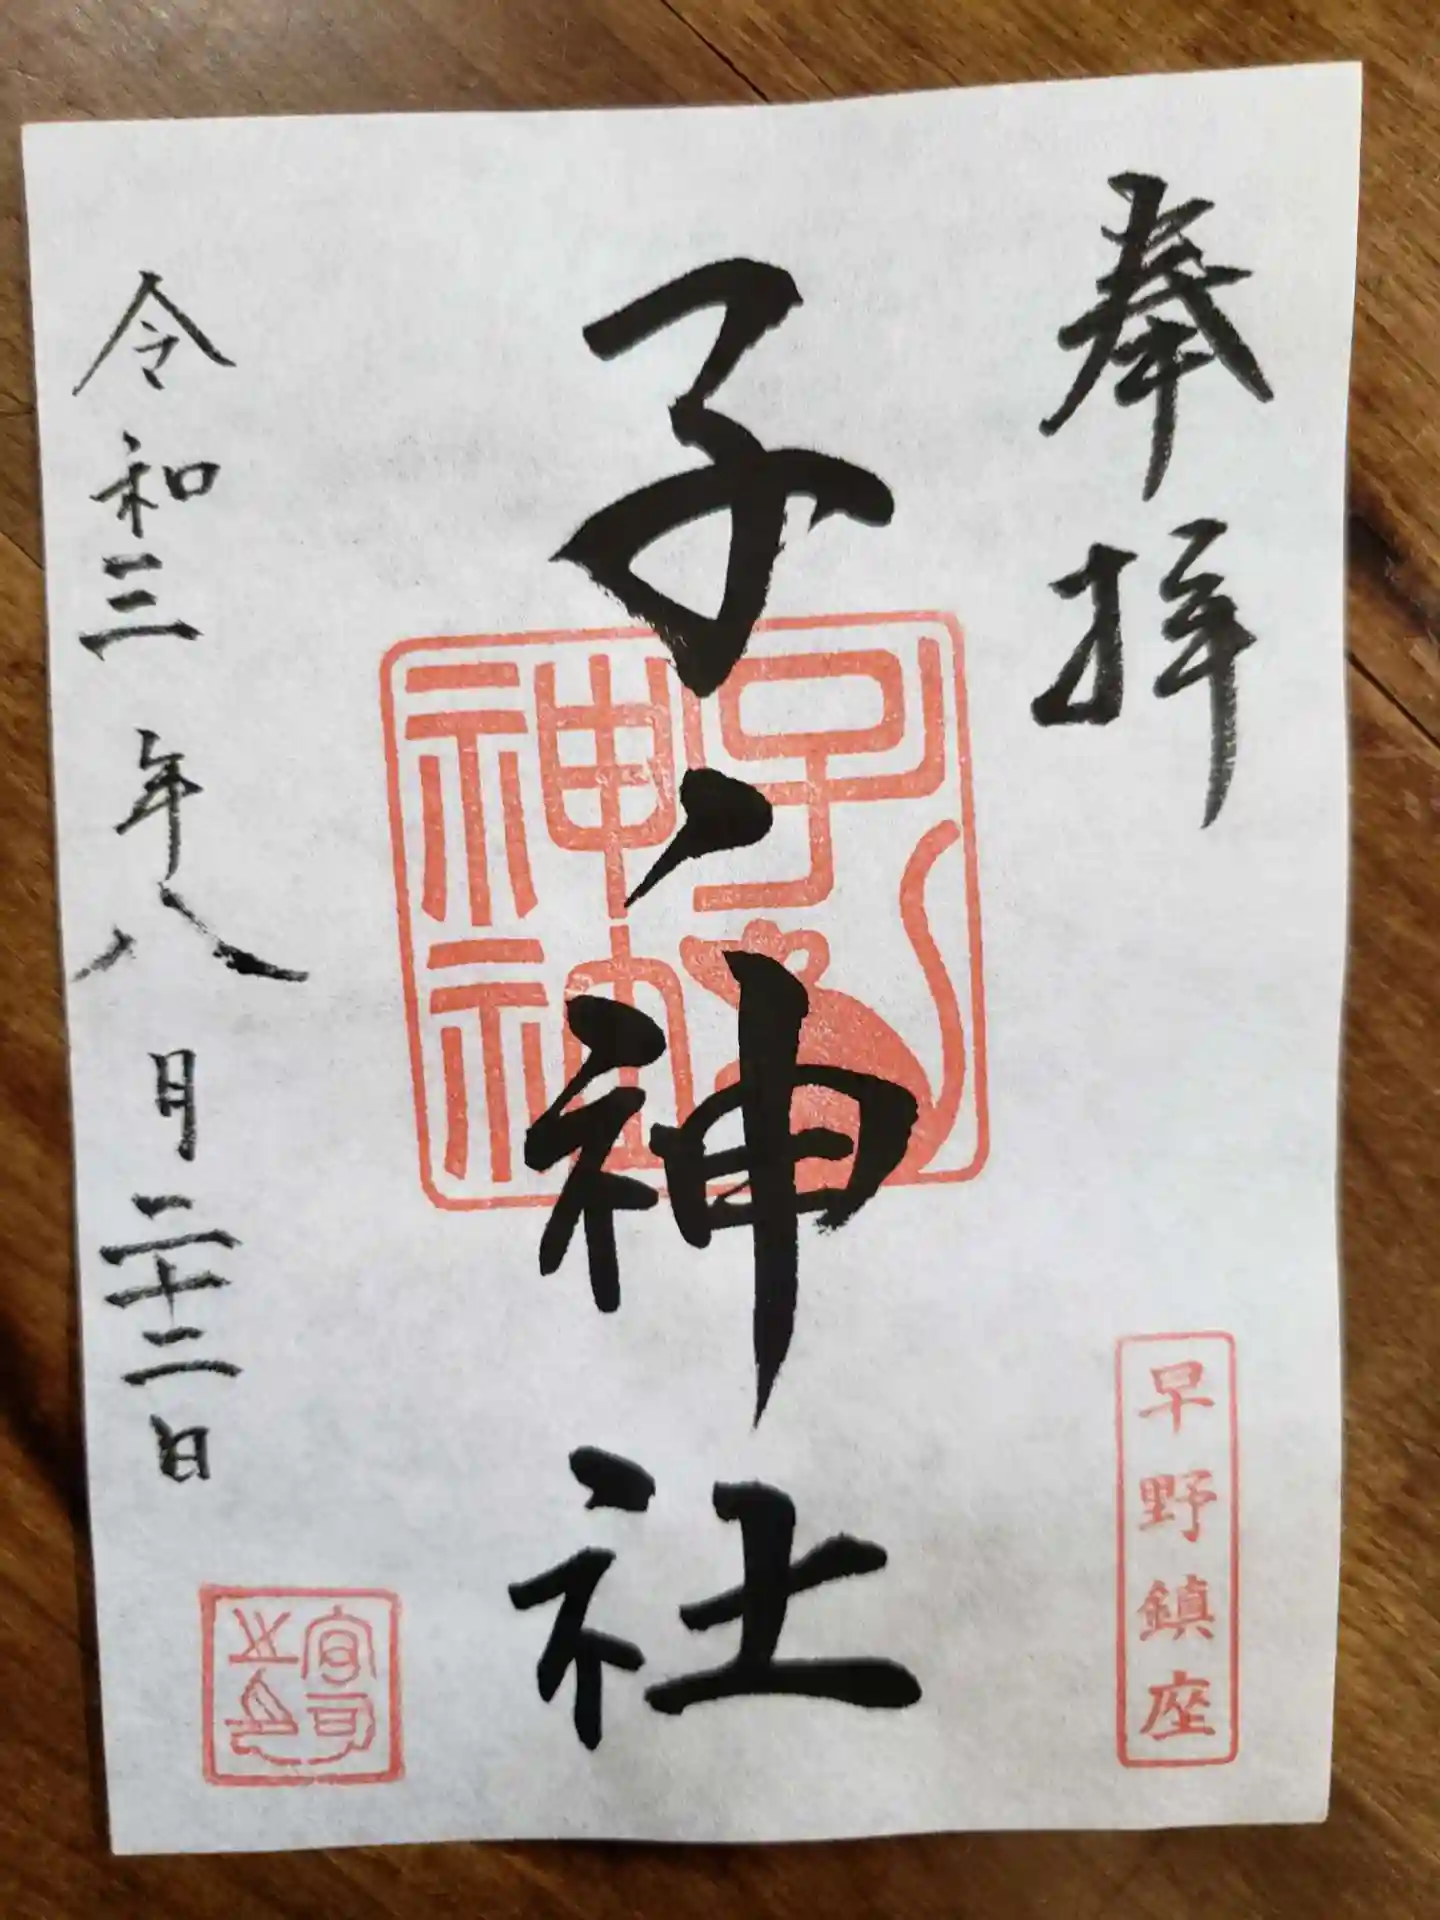 奉拝
早野鎮座
子ノ神社
子神社
令和三年八月二十二日
宮司之印